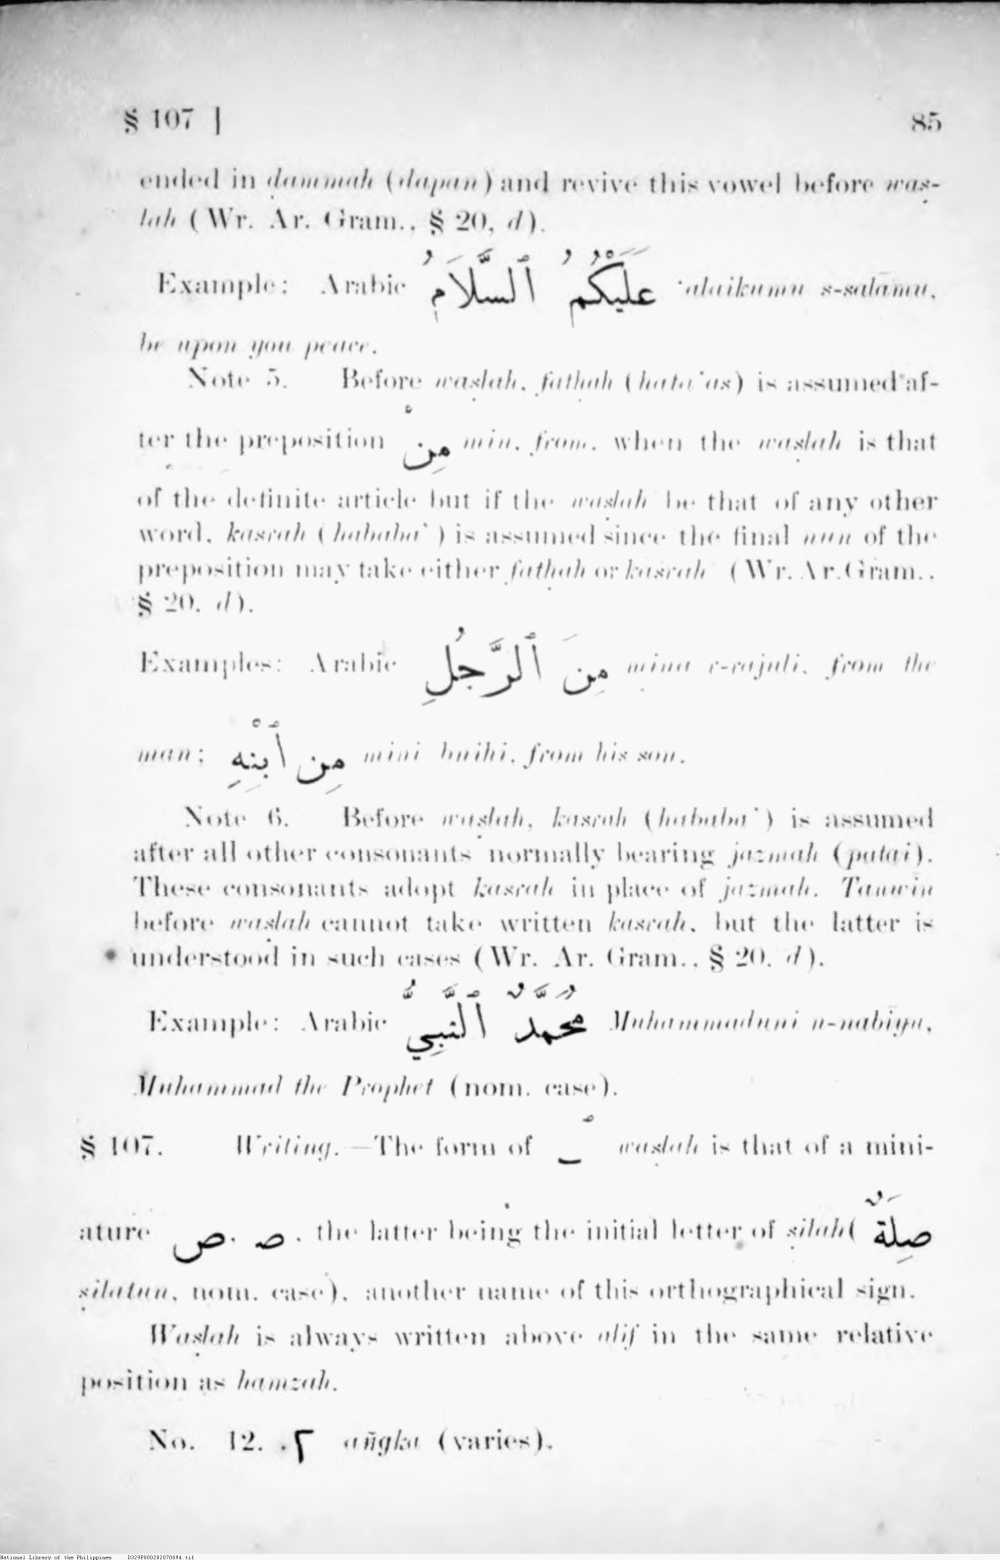 § 107 | 85
ended in dammah (dapan) and revive this vowel before waṣ-
lah (Wr. Ar. Gram., § 20, d).
Example: Arabic عَلَيْكُمُ ٱلسَّلَامُ ‘alaikumu s-salāmu,
be upon you peace.
Note 5. Before waṣlah, fatḥah (hata'as) is assumed af-
ter the preposition مِنْ min, from, when the waṣlah is that
of the definite article but if the waṣlah be that of any other
word, kasrah (hababa') is assumed since the final nun of the
preposition may take either fatḥah or kasrah (Wr. Ar. Gram.,
§ 20, d).
Examples: Arabic مِنَ ٱلرَّجُلِ mina r-rajuli, from the
man; مِنِ ٱبْنِهِ mini bnihi, from his son.
Note 6. Before waṣlah, kasrah (hababa') is assumed
after all other consonants normally bearing jazmah (patai).
These consonants adopt kasrah in place of jazmah. Tanwīn
before waṣlah cannot take written kasrah, but the latter is
understood in such cases (Wr. Ar. Gram., § 20, d).
Example: Arabic مُحَمَّدٌ ٱلنَّبِيُّ Muḥammaduni n-nabīyu,
Muḥammad the Prophet (nom. case).
§ 107. Writing.—The form of ٱ waṣlah is that of a mini-
ature ص, صـ, the latter being the initial letter of ṣilah (صِلَةٌ
ṣilatun, nom. case), another name of this orthographical sign.
Waṣlah is always written above alif in the same relative
position as hamzah.
No. 12. ٢ añgka (varies).
National Library of the Philippines